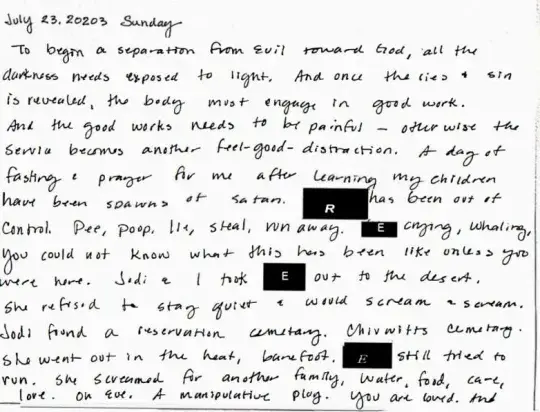 July 23, 20203 Sunday
To begin a separation from Evil toward God, all the
darkness needs exposed to light. And once the lies & sin
is revealed, the body must engage in good work.
And the good works needs to be painful – otherwise the
service becomes another feel-good-distraction. A day of
fasting & prayer for me after learning my children
have been spawns of satan. R has been out of
control. Pee, poop, lie, steal, run away. E crying, whaling,
You could not know what this has been like unless you
were here. Jodi & I took E out to the desert.
She refused to stay quiet & would scream & scream.
Jodi found a reservation cemetary. Chivwitts Cemetary.
She went out in the heat, barefoot. E still tried to
run. She screamed for another family, water, food, care,
love. On Eve. A manipulative plug. You are loved. And